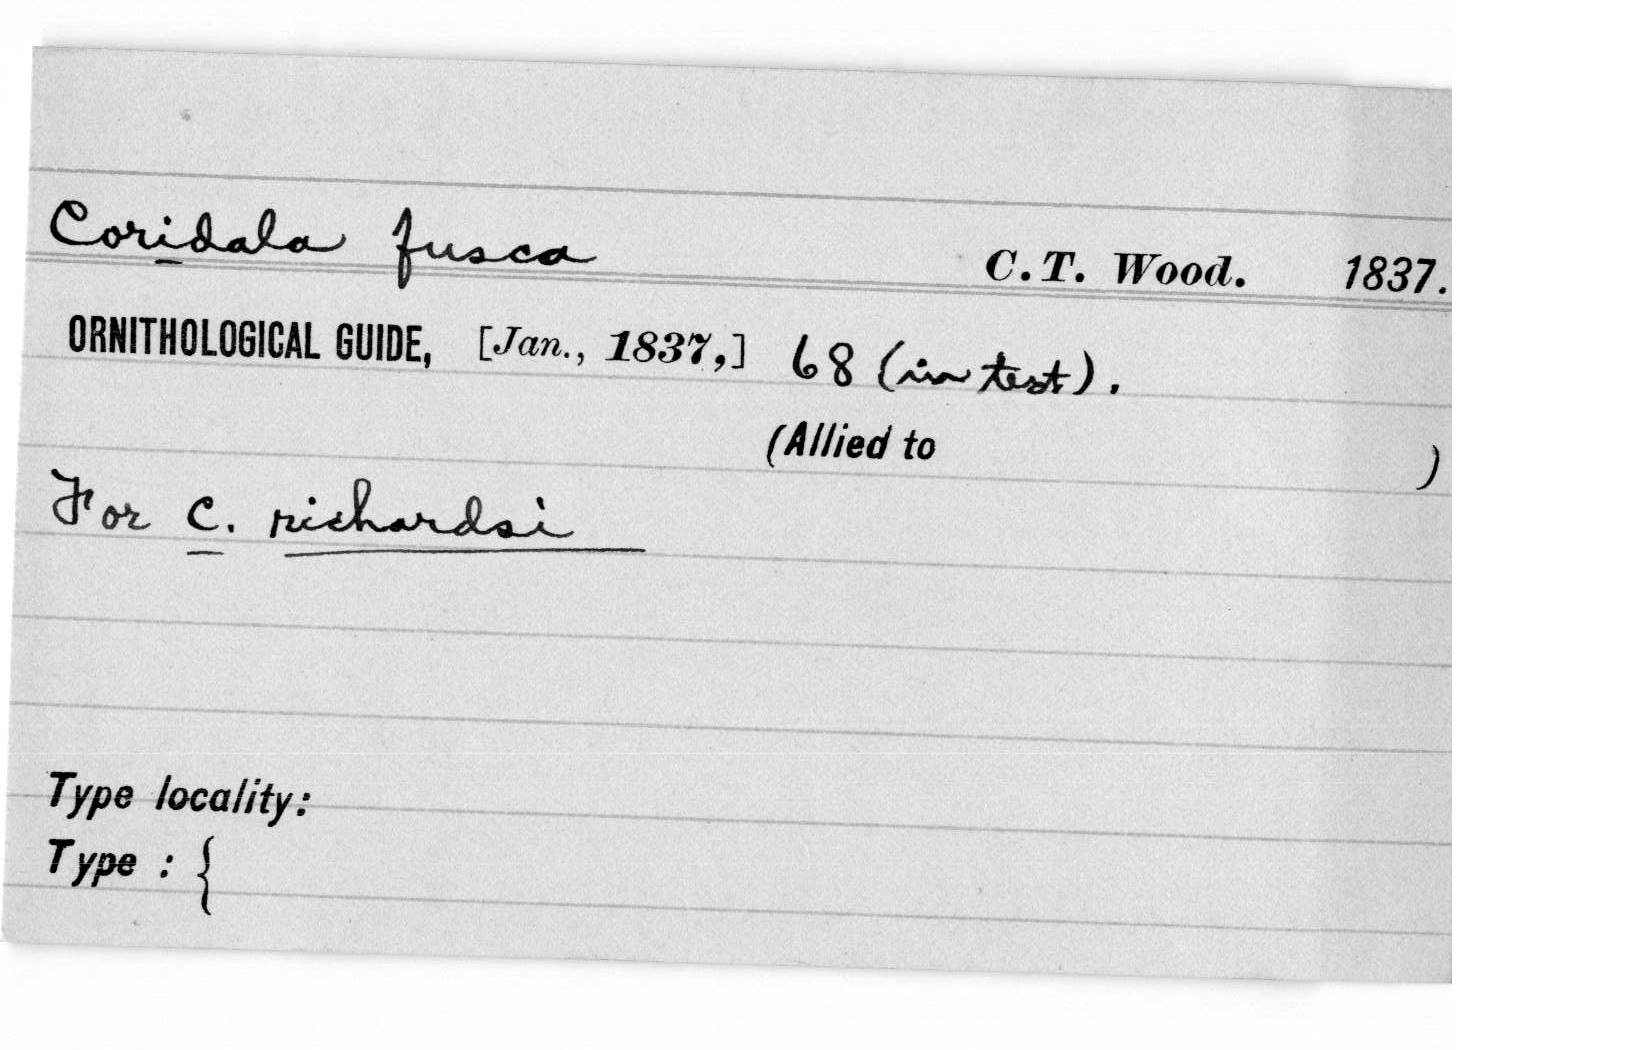 Coridala fusca C. T. Wood. 1837.
ORNITHOLOGICAL GUIDE, [Jan., 1837,] 68 (in text).
(Allied to )
For C. richardsi
Type locality:
Type : {